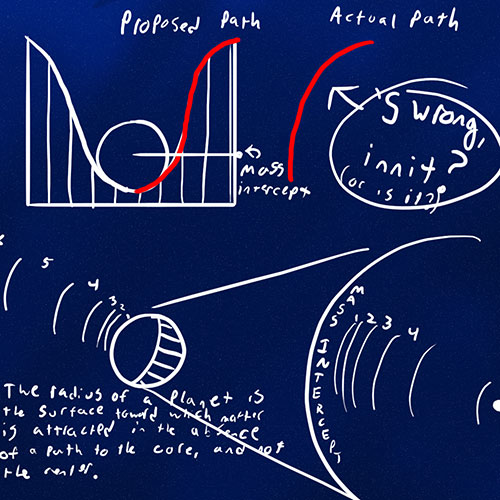 Proposed Path
Actual Path
'S wrong,
innit?
(or is it?)
Mass
intercept
5
4
3 2 1
MASS INTERCEPT
1 2 3 4
The radius of a planet is
the surface toward which matter
is attracted in the absence
of a path to the core, and not
the center.